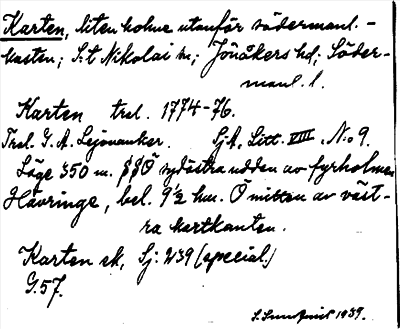 Karten, liten holme utanför södermanl.-
kusten; S:t Nikolai sn; Jönåkers hd; Söder-
manl. l.
Karten trol. 1774-76.
Trol. G. A. Lejonanker. SjA. Litt. VIII. No 9.
Läge 350 m. SSÖ sydöstra udden av fyrholmen
Hävringe, bel. 9½ km. Ö mitten av väst-
ra kartkanten.
Karten sk, Sj: 239 (special.)
G.57.
1939.